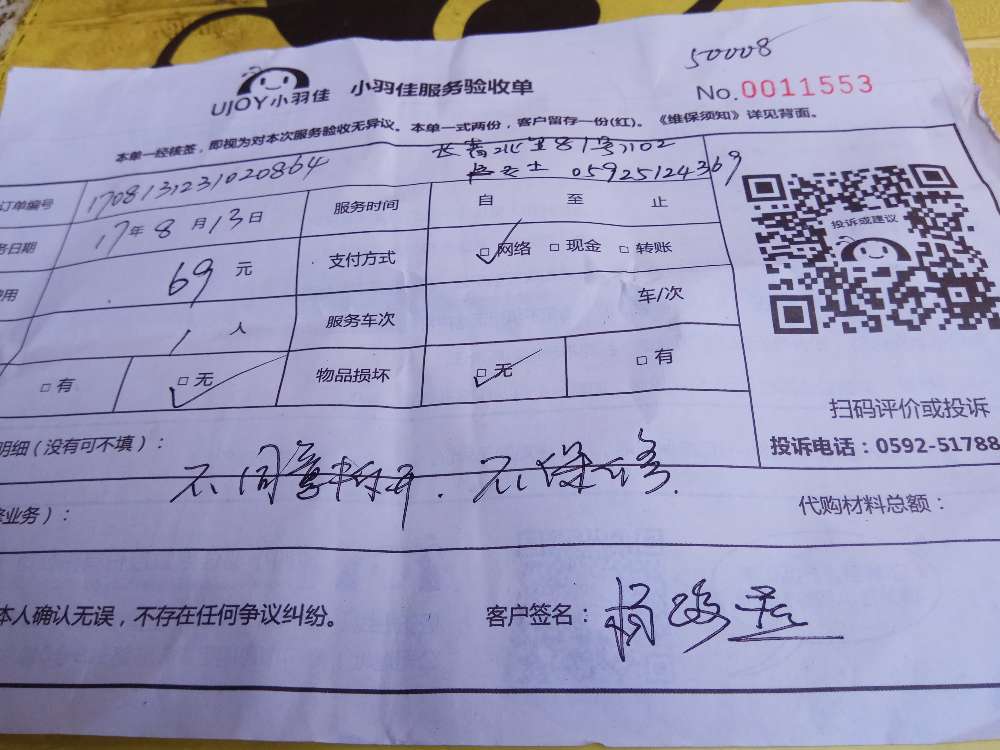 50008
UJOY小羽佳 小羽佳服务验收单 No.0011553
本单一经核签，即视为对本次服务验收无异议。本单一式两份，客户留存一份(红)。《维保须知》详见背面。
长青北里81号102
女士 05925124369
订单编号 1708131231020864
务日期 17年8月13日 服务时间 自 至 止
用 69元 支付方式 □网络 □现金 □转账
1人 服务车次 车/次
□有 □无 物品损坏 □无 □有
投诉或建议
扫码评价或投诉
投诉电话：0592-51788
明细（没有可不填）：
不同意拆开．不保修．
业务）： 代购材料总额：
本人确认无误，不存在任何争议纠纷。 客户签名：杨